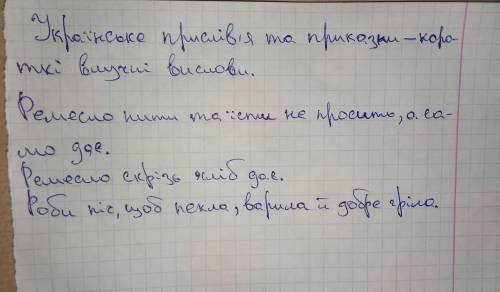 Українське прислів'я та приказки – коро-
ткі влучні вислови.
Ремесло пити та їсти не просить, а са-
мо дає.
Ремесло скрізь хліб дає.
Роби піс, щоб пекла, варила й добре гріла.